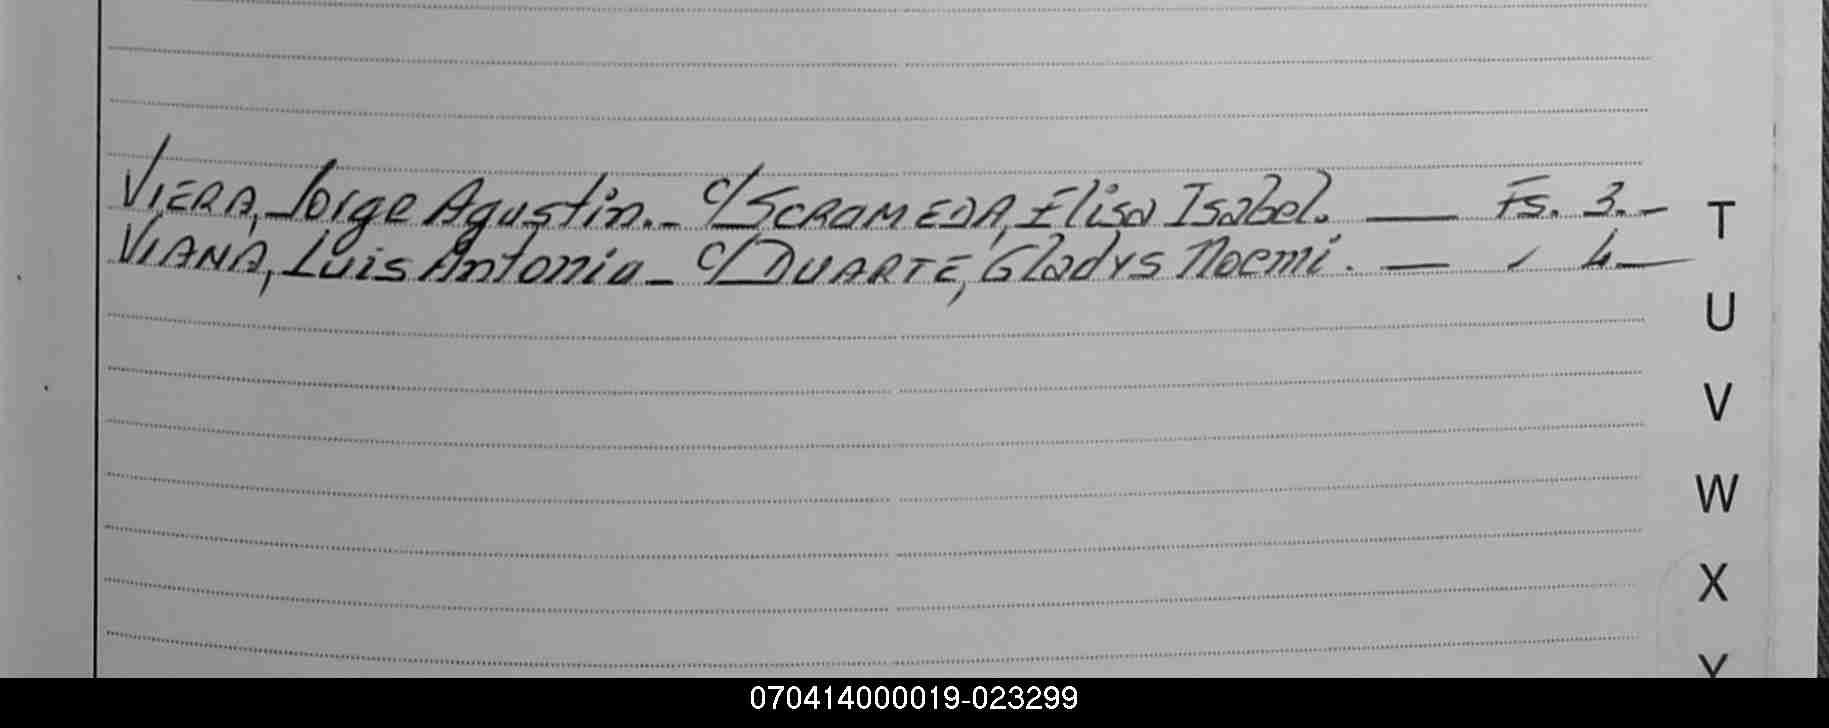 VIERA, Jorge Agustin.- c/ SCROMEDA, Elisa Isabel. — Fs. 3.-
VIANA, Luis Antonio - c/ DUARTE, Gladys Noemi. — " 4 —
T
U
V
W
X
Y
070414000019-023299